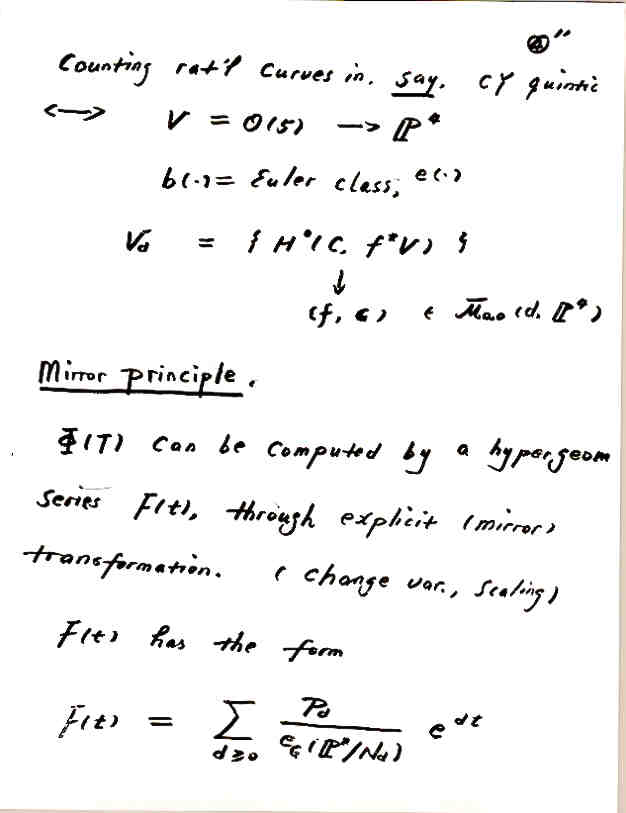 ④''
Counting rat'l curves in, say, CY quintic
⟷ V = O(5) → ℙ⁴
b(·) = Euler class, e(·)
V_d = { H⁰(C, f*V) }
↓
(f, C) ∈ M̄₀,₀(d, ℙ⁴)
Mirror principle.
Φ(T) can be computed by a hypergeom
series F(t), through explicit (mirror)
transformation. (change var., scaling)
F(t) has the form
F(t) = Σ_{d≥0} P_d / e_G(ℙⁿ/N_d) e^{dt}